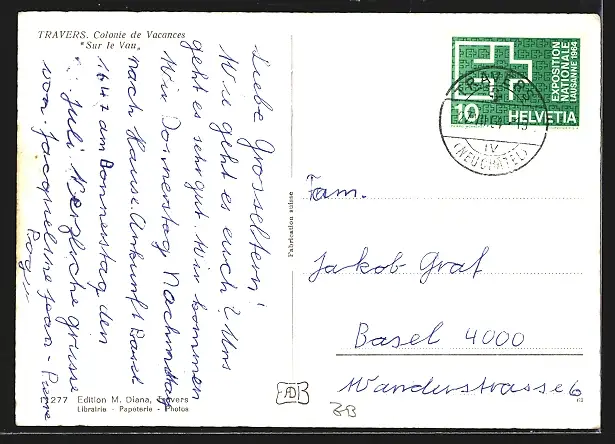 TRAVERS. Colonie de Vacances
"Sur le Vau"
Liebe Grosseltern!
Wie geht es euch? Uns
geht es sehr gut. Wir kommen
Wir Donnerstag Nachmittag
nach Hause Ankunft Basel
1642 am Donnerstag den
Juli Herzliche grüsse
von: Jacqueline Jean-Pierre
Roger
11277 Edition M. Diana, Travers
Librairie - Papeterie - Photos
Fabrication suisse
EXPOSITION
NATIONALE
LAUSANNE 1964
10 HELVETIA
TRAVERS
(NEUCHÂTEL)
Fam.
Jakob Graf
Basel 4000
Wanderstrasse 6